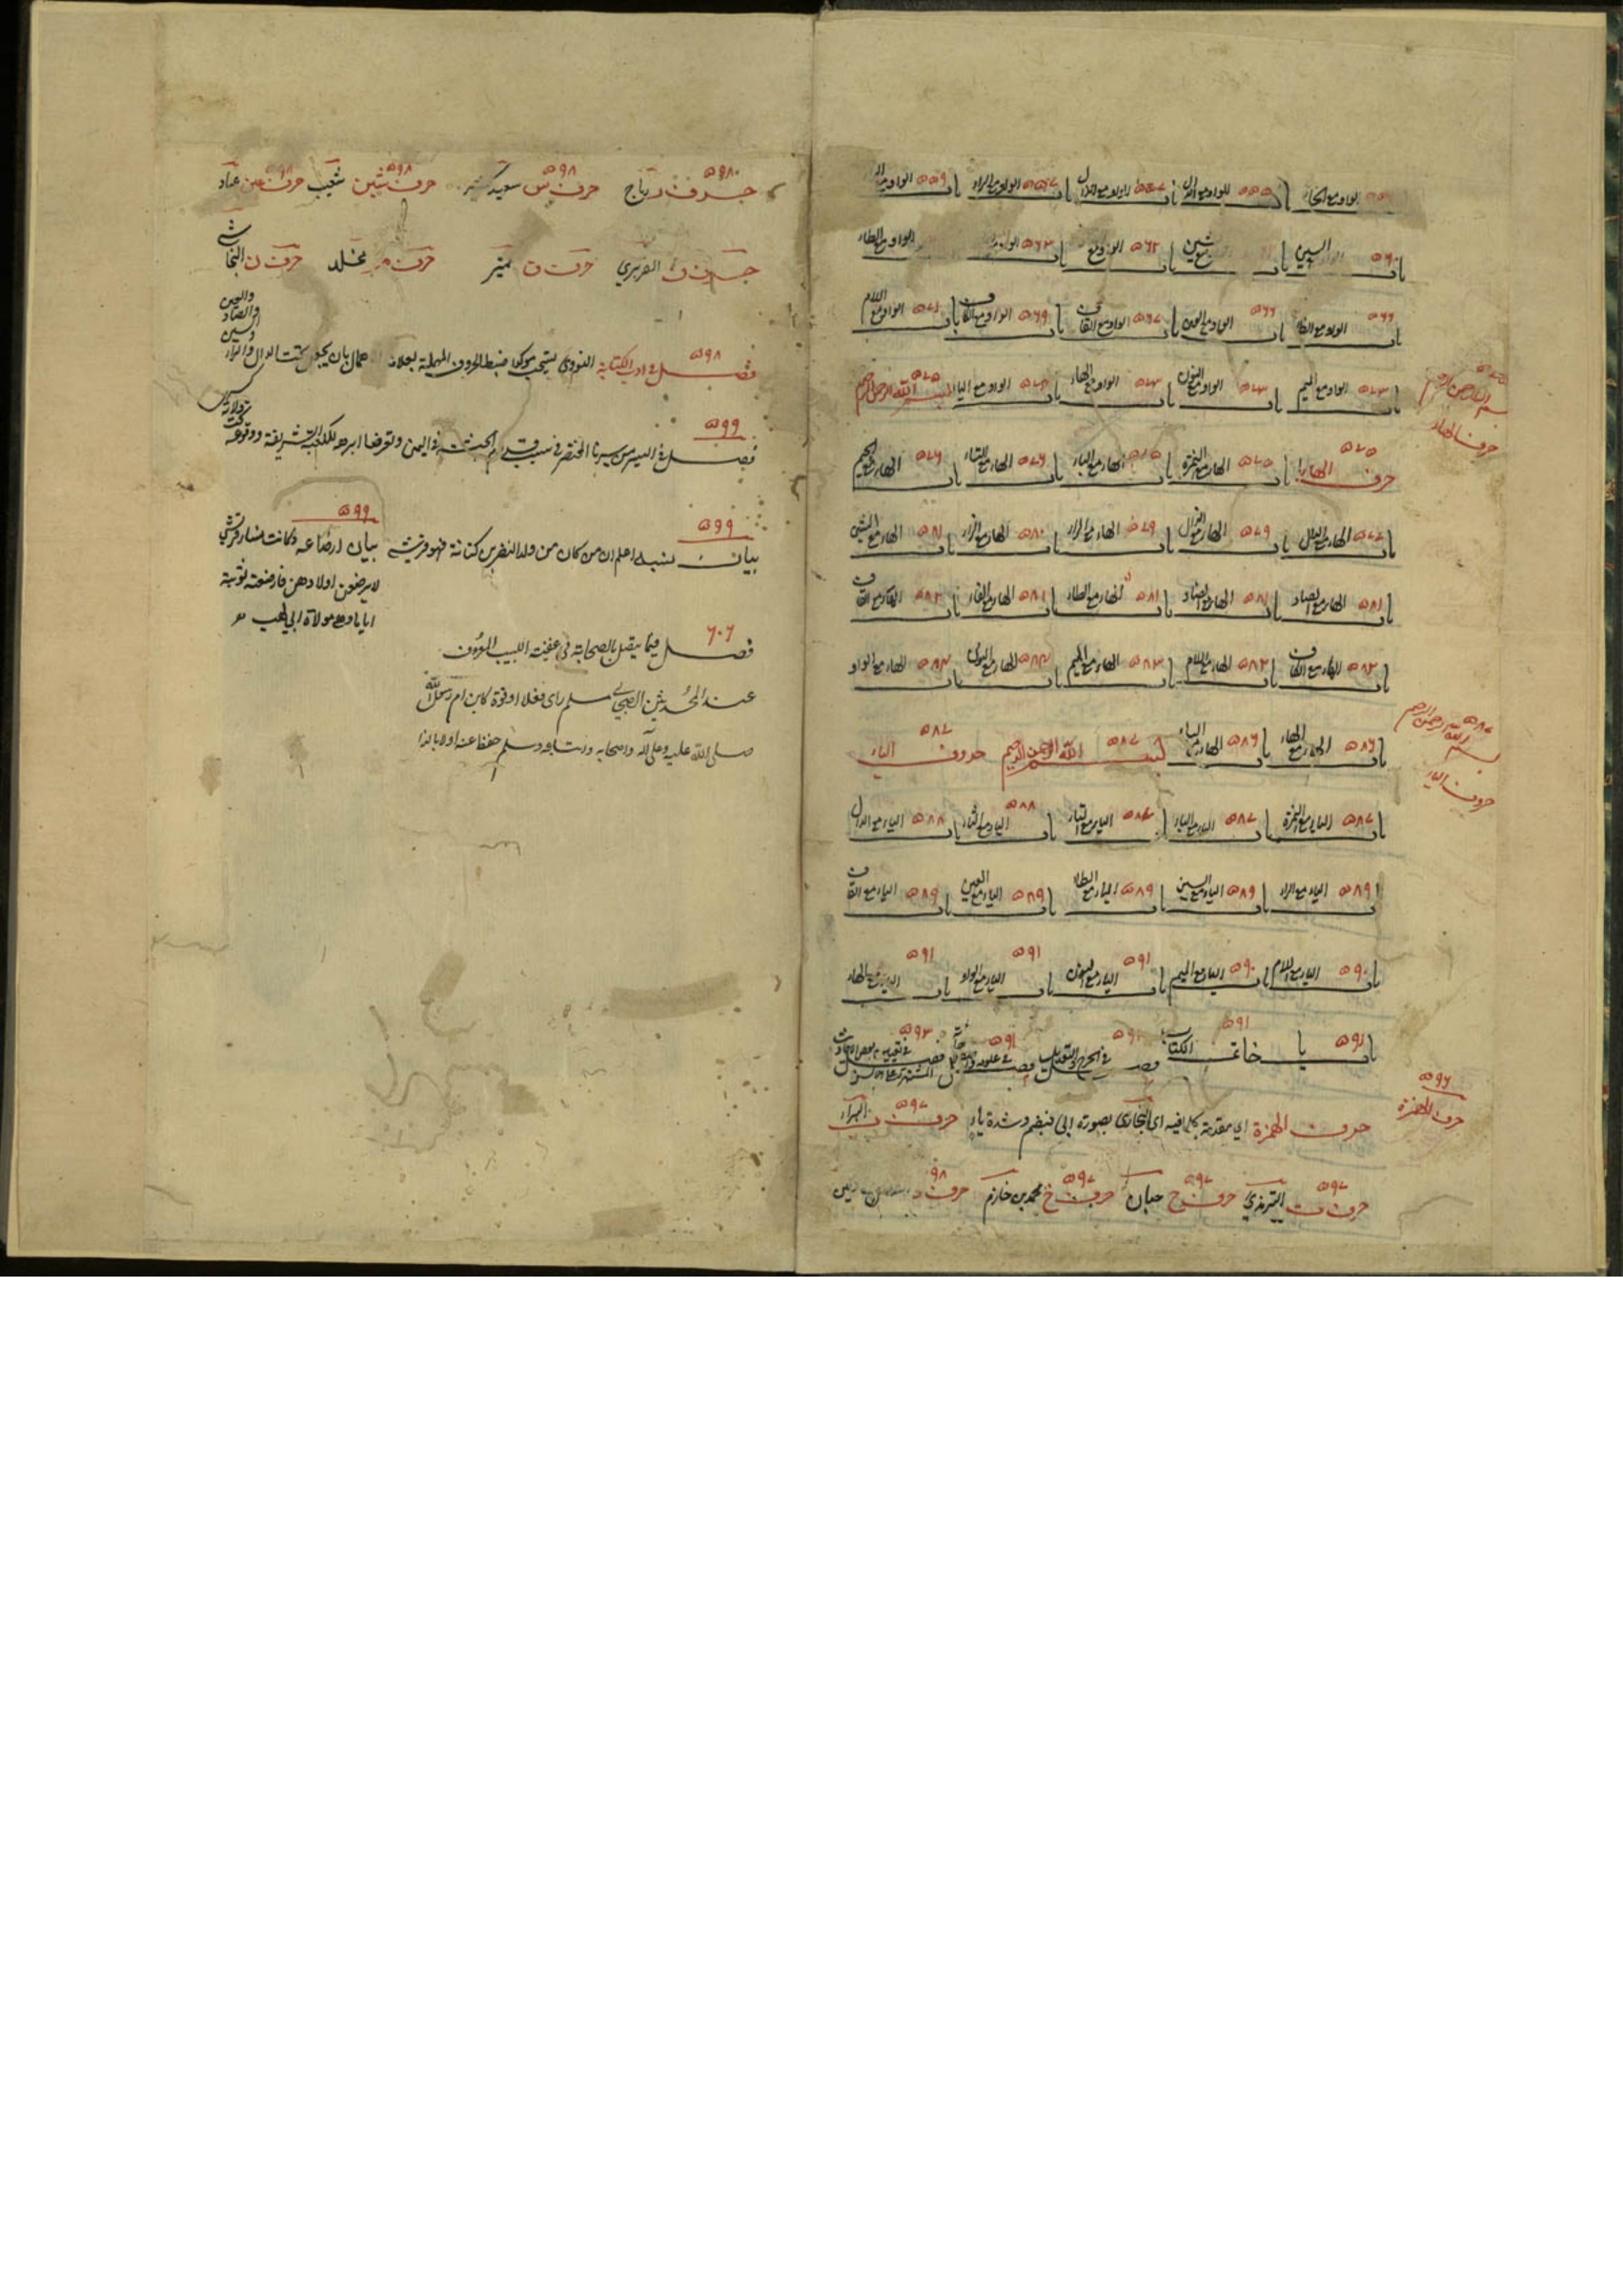 باب الواو مع الخاء ٥٥٥ باب الواو مع الدال باب الواو مع الذال ٥٥٧ باب الواو مع الراء ٥٥٩ باب الواو مع
٥٦٠ باب السين باب شين ٥٦٢ باب الواو مع ٥٦٣ باب الواو باب الواو مع الطاء
٥٦٦ باب الواو مع الظاء ٥٦٦ باب الواو مع العين ٥٦٧ باب الواو مع القاف ٥٦٩ باب الواو مع الكاف ٥٧١ باب الواو مع اللام
٥٧٣ باب الواو مع الميم ٥٧٣ باب الواو مع النون ٥٧٣ باب الواو مع الهاء ٥٧٥ باب الواو مع الياء ٥٧٥ بسم الله الرحمن الرحيم
بسم الله الرحمن الرحيم
حرف الهاء
حرف الهاء ٥٧٥ باب الهاء مع الهمزة ٥٧٥ باب الهاء مع الباء ٥٧٥ باب الهاء مع التاء ٥٧٦ باب الهاء مع الجيم ٥٧٦
باب الهاء مع الدال ٥٧٧ باب الهاء مع الذال ٥٧٩ باب الهاء مع الراء ٥٧٩ باب الهاء مع الزاء ٥٨٠ باب الهاء مع الشين ٥٨١
باب الهاء مع الصاد ٥٨١ باب الهاء مع الضاد ٥٨١ باب الهاء مع الطاء ٥٨١ باب الهاء مع الفاء ٥٨١ باب الهاء مع القاف ٥٨٢
باب الهاء مع الكاف ٥٨٢ باب الهاء مع اللام ٥٨٢ باب الهاء مع الميم ٥٨٣ باب الهاء مع النون ٥٨٣ باب الهاء مع الواو ٥٨٣
باب الهاء مع الهاء ٥٨٦ باب الهاء مع الياء ٥٨٦ بسم الله الرحمن الرحيم ٥٨٧ حروف الياء ٥٨٧
٥٨٧ بسم الله الرحمن الرحيم
حروف الياء
باب الياء مع الهمزة ٥٨٧ باب الياء مع الباء ٥٨٧ باب الياء مع التاء ٥٨٧ باب الياء مع الثاء ٥٨٨ باب الياء مع الدال ٥٨٨
باب الياء مع الراء ٥٨٩ باب الياء مع السين ٥٨٩ باب الياء مع الطاء ٥٨٩ باب الياء مع العين ٥٨٩ باب الياء مع القاف ٥٨٩
باب الياء مع اللام ٥٩٠ باب الياء مع الميم ٥٩٠ باب الياء مع النون ٥٩١ باب الياء مع الواو ٥٩١ باب الياء مع الهاء ٥٩١
باب يا ٥٩١ خاتمة الكتاب ٥٩١ فصل في الجرح والتعديل فصل في علومه ٥٩١ فصل في تعيين بعض الاحاديث المشتهرة على الالسن ٥٩٣
٥٩٦ حرف الهمزة
حرف الهمزة اي مقدمة كل ما فيه اي البخاري بصورة ابي فبضم وشدة ياء حرف ب ٥٩٧ البراء
حرف ت ٥٩٧ الترمذي حرف ح ٥٩٧ حبان حرف خ ٥٩٧ محمد بن خازم حرف د
حرف ر ٥٩٨ رباح حرف س ٥٩٨ سعيد حرف شين ٥٩٨ شعيب حرف عين ٥٩٨ عباد
حرف ف الفربري حرف ن نمير حرف م مخلد حرف ن النجاشي
فصل في ادب الكتابة ٥٩٨ النووي يستحب ضبط الحروف المهملة بعلامة اهمال بان يجعل تحت الدال والراء والسين والصاد والعين
فصل في السير من سيرنا المختصر في سبب قدوم الحبشة في اليمن وتعرض ابرهة للكعبة الشريفة ووقوعه ٥٩٩
بيان نسبه اعلم ان من كان من ولد النضر بن كنانة فهو قرشي ٥٩٩ بيان ارضاعه وكانت نساء قريش ٥٩٩
لا يرضعن اولادهن فارضعته ثويبة
اياما وهي مولاة ابي لهب
فصل فيما يتصل بالصحابة ٦٠٦
عند المحدثين الصحابي مسلم راى فعلا او قوة كابن ام رسول الله
صلى الله عليه وعلى آله واصحابه واتباعه وسلم حفظا عنه اولا